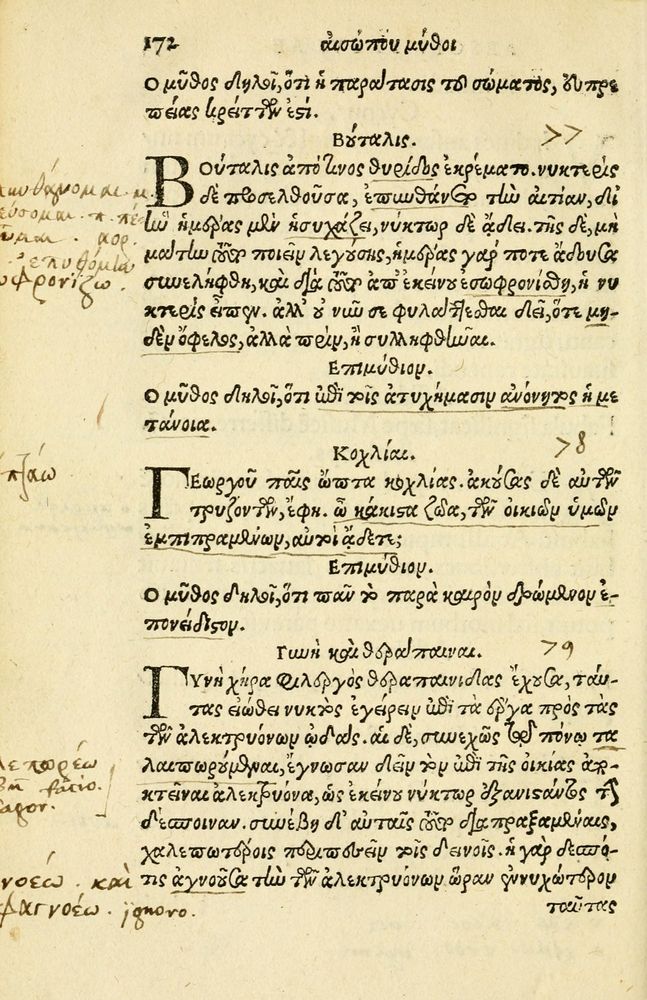 172 αἰσώπου μῦθοι
Ο μῦθος δηλοῖ, ὅτι ἡ παράτασις τοῦ σώματος, εὐπρε
πείας κρείττων ἐστί.
Βούταλις. 77
ΒΟύταλις ἀπό τινος θυρίδος ἐκρέματο. νυκτερὶς
δὲ προσελθοῦσα, ἐπυνθάνετο τὴν αἰτίαν, δι
ἣν ἡμέρας μὲν ἡσυχάζει, νύκτωρ δὲ ᾄδει. τῆς δὲ, μὴ
μάτην τοῦτο ποιεῖν λεγούσης, ἡμέρας γάρ ποτε ᾄδουσα
συνελήφθη, καὶ διὰ τοῦτο ἀπ' ἐκείνου ἐσωφρονίσθη, ἡ νυ
κτερὶς εἶπεν. ἀλλ' οὐ νῦν σε φυλάττεσθαι δεῖ, ὅτε μη-
δὲν ὄφελος, ἀλλὰ πρὶν, ἢ συλληφθῆναι.
Επιμύθιον.
Ο μῦθος δηλοῖ, ὅτι ἐπὶ τοῖς ἀτυχήμασιν ἀνόνητος ἡ με
τάνοια.
Κοχλίαι. 78
ΓΕωργοῦ παῖς ὤπτα κοχλίας. ἀκούσας δὲ αὐτῶν
τρυζόντων, ἔφη. ὦ κάκιστα ζῶα, τῶν οἰκιῶν ὑμῶν
ἐμπιπραμένων, αὐτοὶ ᾄδετε;
Επιμύθιον.
Ο μῦθος δηλοῖ, ὅτι πᾶν τὸ παρὰ καιρὸν δρώμενον ἐ-
πονείδιστον.
Γυνὴ καὶ θεράπαιναι. 79
ΓΥνὴ χήρα φιλεργὸς θεραπαινίδας ἔχουσα, ταύ-
τας εἰώθει νυκτὸς ἐγείρειν ἐπὶ τὰ ἔργα πρὸς τὰς
τῶν ἀλεκτρυόνων ᾠδάς. αἱ δὲ, συνεχῶς τῷ πόνῳ τα
λαιπωρούμεναι, ἔγνωσαν δεῖν τὸν ἐπὶ τῆς οἰκίας ἀπο-
κτεῖναι ἀλεκτρυόνα, ὡς ἐκείνου νύκτωρ ἐξανιστάντος τὴν
δέσποιναν. συνέβη δ' αὐταῖς τοῦτο διαπραξαμέναις,
χαλεπωτέροις περιπεσεῖν τοῖς δεινοῖς. ἡ γὰρ δεσπό-
τις ἀγνοοῦσα τὴν τῶν ἀλεκτρυόνων ὥραν ἐννυχώτερον
ταύτας
νοέω. καὶ
ἀγνοέω. ignoro.